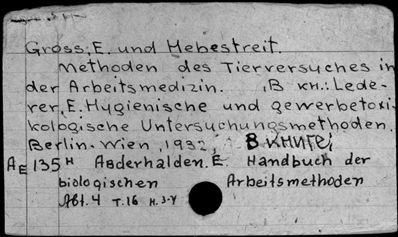 Gross, E. und Hebestreit.
Methoden des Tierversuches in
der Arbeitsmedizin. , В кн.: Lede-
rer, E. Hygienische und gewerbetoxi-
kologische Untersuchungsmethoden.
Berlin-Wien, 1932, В КНИГЕ:
AE 135 H Abderhalden. E. Handbuch der
biologischen Arbeitsmethoden
Abt. 4 Т.16 H. 3-4